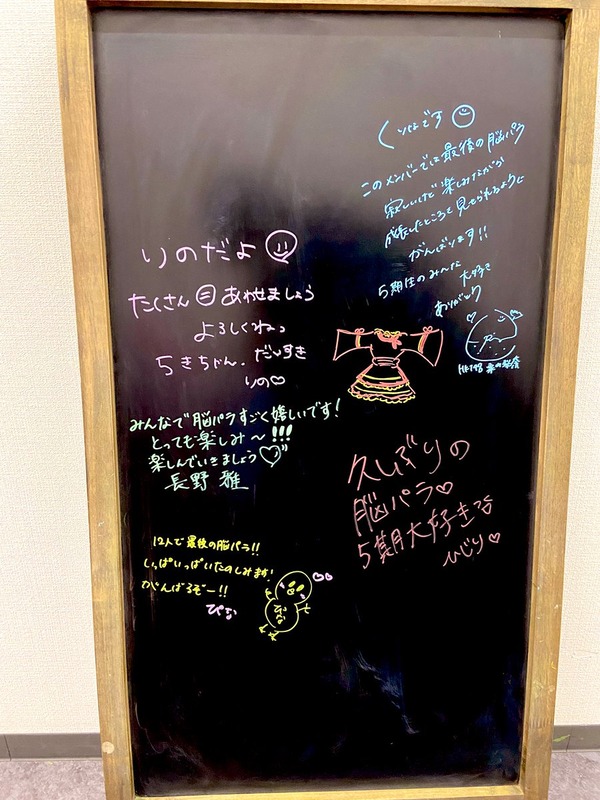 です
このメンバーでは最後の脳パラ
寂しいけど楽しみながら
成長したところを見せられるように
がんばります!!
5期生のみんな
大好き
ありがとう
HKT48
りのだよ
たくさん 目 あわせましょう
よろしくねっ
5きちゃん、だいすき
りの♡
みんなで脳パラすごく嬉しいです!
とっても楽しみ〜!!!
楽しんでいきましょう♡
長野 雅
久しぶりの
脳パラ♡
5期大好き
ひじり♡
12人で最後の脳パラ!!
いっぱいいっぱいたのしみます!
がんばるぞー!!
ぴな